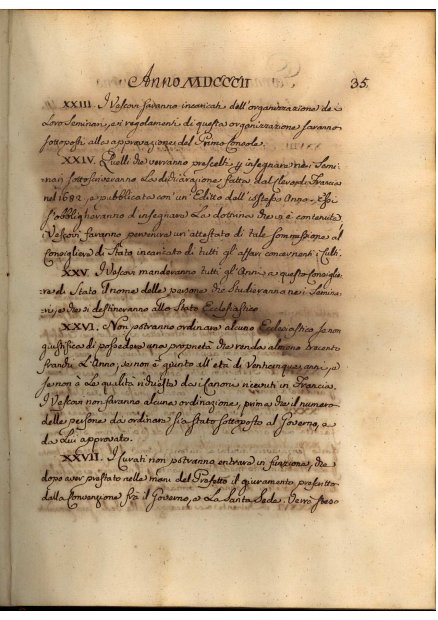 Anno MDCCCII 35
XXIII. I Vescovi saranno incaricati dell'organizzazione de i
Loro Seminari, e i regolamenti di questa organizzazione saranno
sottoposti alla approvazione del Primo Console.
XXIV. Quelli che verranno prescelti p insegnare ne i Semi-
nari sottoscriveranno La dichiarazione fatta dal Clero di Francia
nel 1682, e pubblicata con un Editto dell'istess Anno. Essi
s'obbligheranno di insegnare La dottrina che vi è contenuta
i Vescovi faranno pervenire un'attestato di tale sommissione al
Consigliere di Stato incaricato di tutti gl'affari concernenti i Culti.
XXV. I Vescovi manderanno tutti gl'Anni a questo Consiglie-
re di Stato il nome delle persone che Studieranno ne i Semina-
ri, e che si destineranno allo Stato Ecclesiastico
XXVI. Non potranno ordinare alcuno Ecclesiastico, se non
giustifica di possedere una proprietà che renda almeno trecento
franchi L'Anno, se non è giunto all'età di Venticinque anni, e
se non à Le qualità richieste da i Canoni ricevuti in Francia.
I Vescovi non faranno alcuna ordinazione, prima che il numero
delle persone da ordinare sia stato sottoposto al Governo, e
da Lui approvato.
XXVII. I Curati non potranno entrare in funzione, che
dopo aver prestato nelle mani del Prefetto il giuramento prescritto
dalla Convenzione frà il Governo, e La Santa Sede. Verrà steso